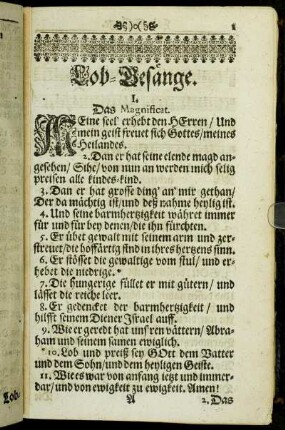 )o( 1
Lob-Gesänge.
I.
Das Magnificat.
MEine seel erhebt den HErren / Und
mein geist freuet sich Gottes / meines
Heilandes.
2. Dan er hat seine elende magd an-
gesehen / Sihe / von nun an werden mich selig
preisen alle kindes-kind.
3. Dan er hat grosse ding' an mir gethan /
Der da mächtig ist / und deß nahme heylig ist.
4. Und seine barmhertzigkeit währet immer
für und für bey denen / die ihn fürchten.
5. Er übet gewalt mit seinem arm und zer-
streuet / die hoffärtig sind in ihres hertzens sinn.
6. Er stösset die gewaltige vom stul / und er-
hebet die niedrige.*
7. Die hungerige füllet er mit gütern / und
lässet die reiche leer.
8. Er gedencket der barmhertzigkeit / und
hilfft seinem Diener Israel auff.
9. Wie er geredt hat unsren vättern / Abra-
ham und seinem samen ewiglich.
*10. Lob und preiß sey GOtt dem Vatter
und dem Sohn / und dem heyligen Geiste.
11. Wie es war von anfang ietzt und immer-
dar / und von ewigkeit zu ewigkeit. Amen!
A 2. Das
Lob-